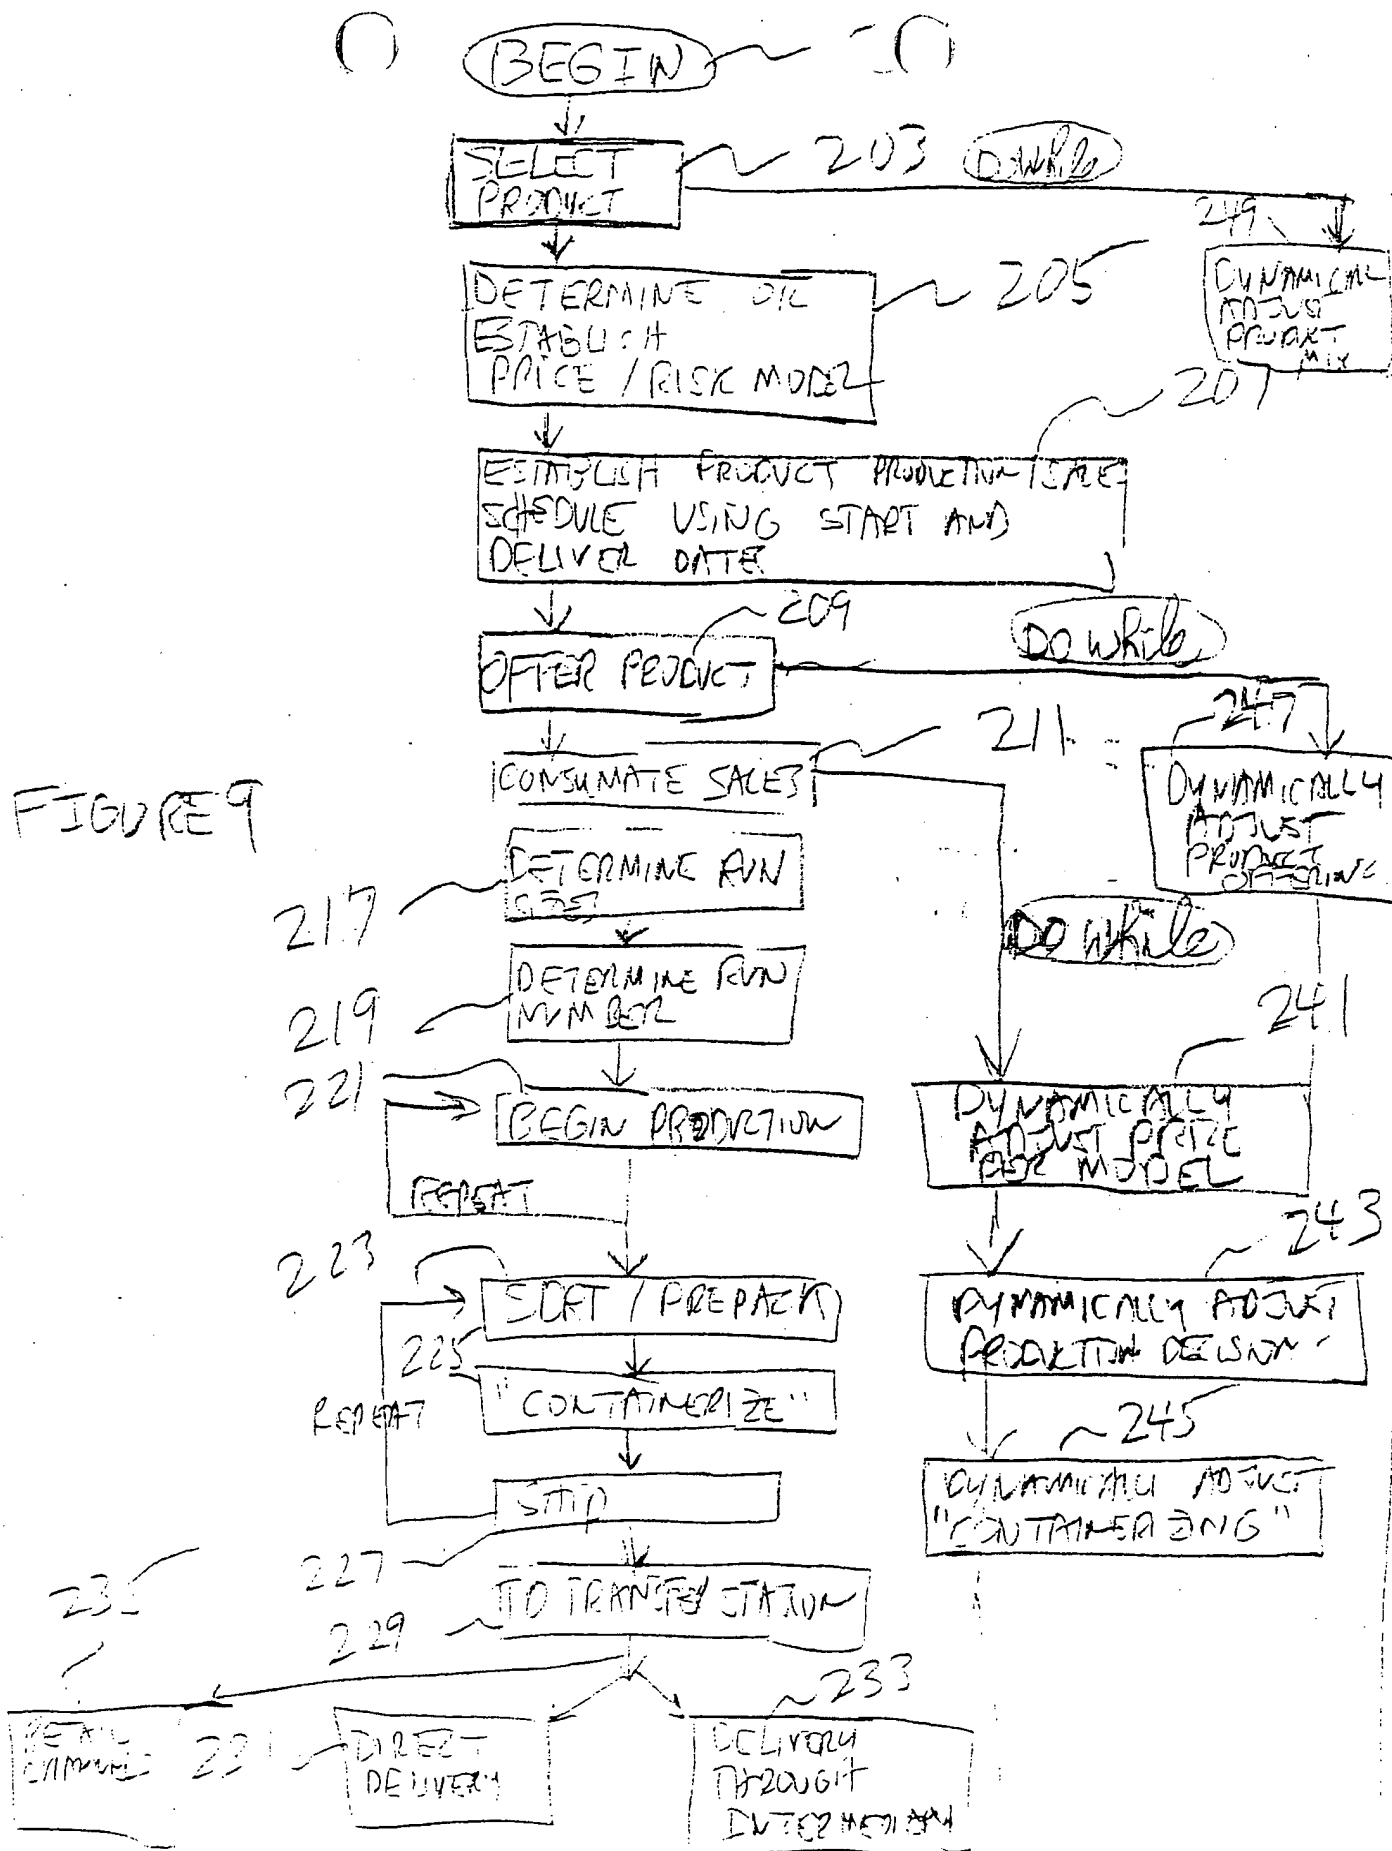 BEGIN
SELECT
PRODUCT
203
DO While
249
DYNAMICAL
ADJUST
PRODUCT
MIX
DETERMINE OR
ESTABLISH
PRICE / RISK MODEL
205
207
ESTABLISH PRODUCT PRODUCTION / SALE
SCHEDULE USING START AND
DELIVER DATE
209
DO While
OFFER PRODUCT
211
247
CONSUMATE SALES
DYNAMICALLY
ADJUST
PRODUCT
OFFERING
FIGURE 9
DETERMINE RUN
217
DO While
DETERMINE RUN
NUMBER
219
241
221
BEGIN PRODUCTION
DYNAMICALLY
ADJUST PRICE
PER MODEL
REPEAT
243
223
SORT / PREPACK
DYNAMICALLY ADJUST
PRODUCTION DECISION
225
"CONTAINERIZE"
REPEAT
245
SHIP
DYNAMICALLY ADJUST
"CONTAINERIZING"
227
TO TRANSFER STATION
235
229
233
RETAIL
CHANNELS
231
DIRECT
DELIVERY
DELIVERY
THROUGH
INTERMEDIARY